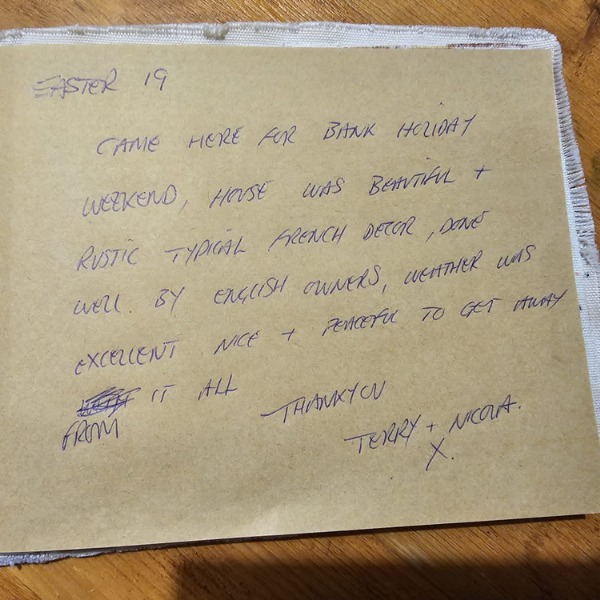 EASTER 19
CAME HERE FOR BANK HOLIDAY
WEEKEND, HOUSE WAS BEAUTIFUL +
RUSTIC TYPICAL FRENCH DECOR, DONE
WELL. BY ENGLISH OWNERS, WEATHER WAS
EXCELLENT NICE + PEACEFUL TO GET AWAY
IT ALL
FROM
THANKYOU
TERRY + NICOLA.
X.